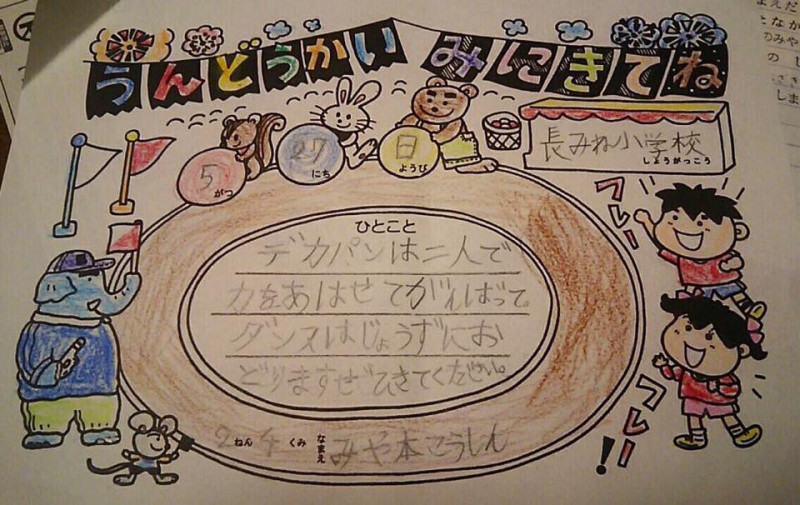 うんどうかい みにきてね
5がつ 27にち 日ようび
長みね小学校
しょうがっこう
フレー
フレー!
ひとこと
デカパンは二人で
力をあはせてがんばって。
ダンスはじょうずにお
どりますぜひきてください。
2ねん 4くみ なまえ みや本こうしん